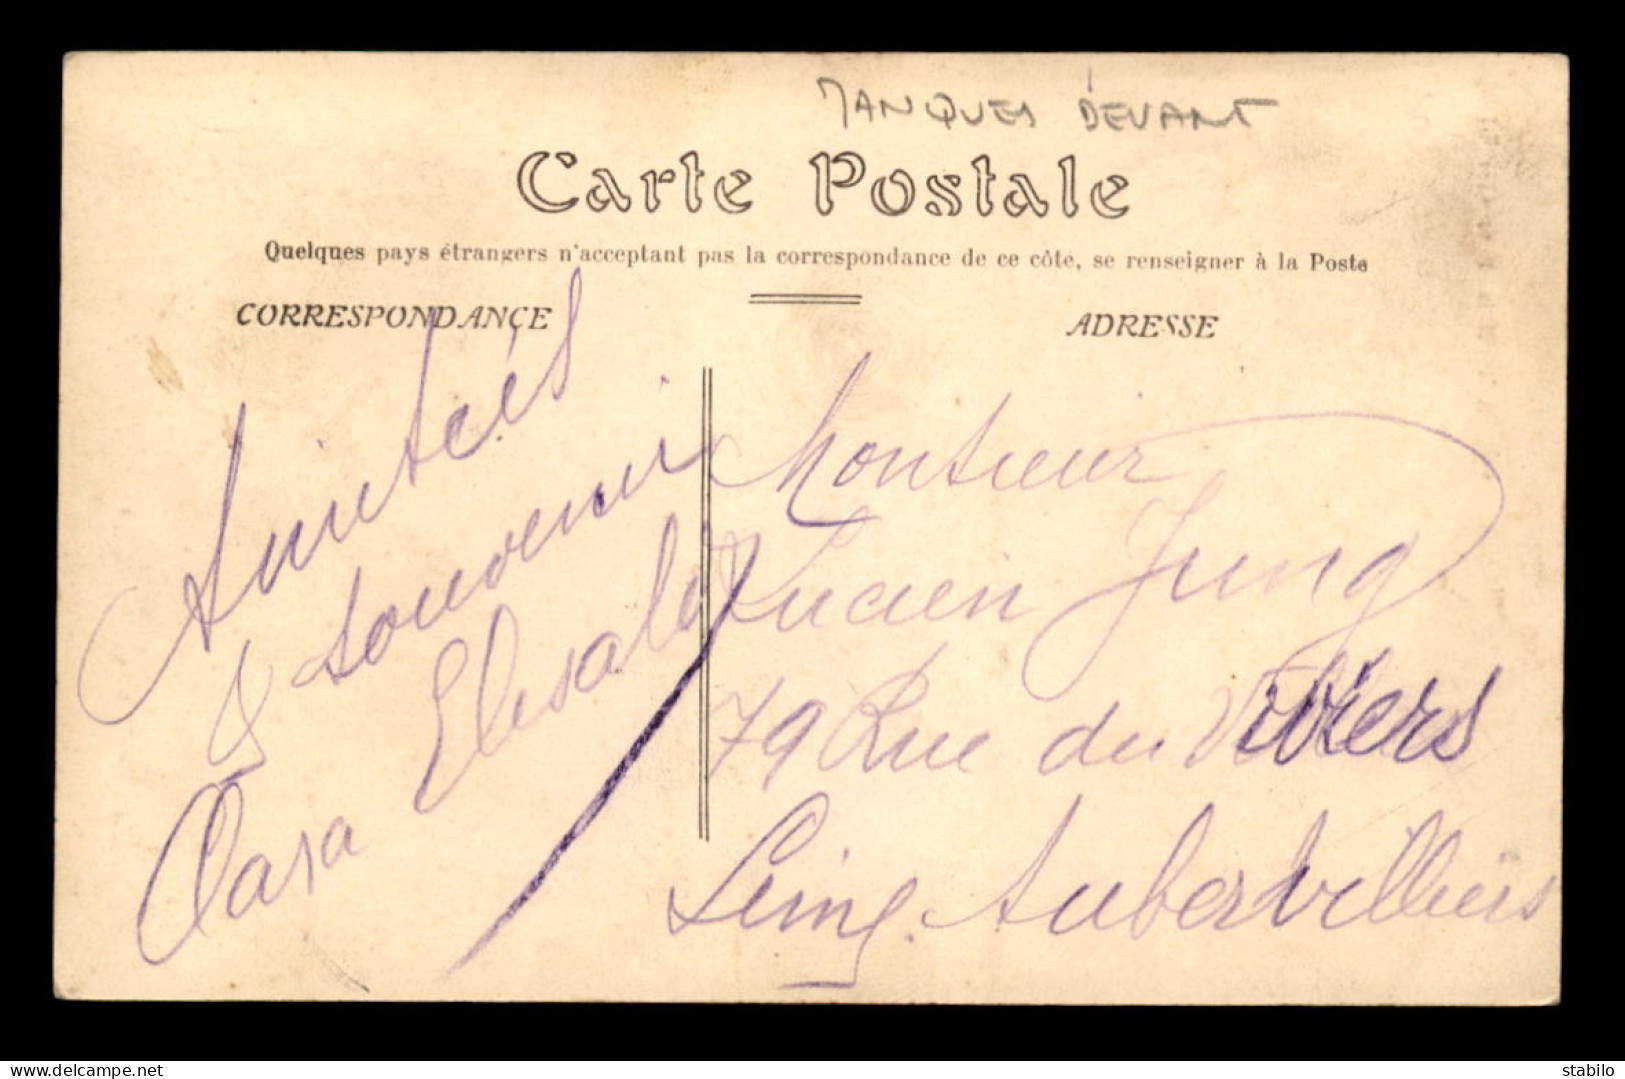 MANQUES DEVANT
Carte Postale
Quelques pays étrangers n'acceptant pas la correspondance de ce côté, se renseigner à la Poste
CORRESPONDANCE
ADRESSE
Amitiés
& Souvenir
Elisabeth
Monsieur
Lucien Jung
79 Rue du Viviers
Seine. Aubervilliers
delcampe.net
stabilo